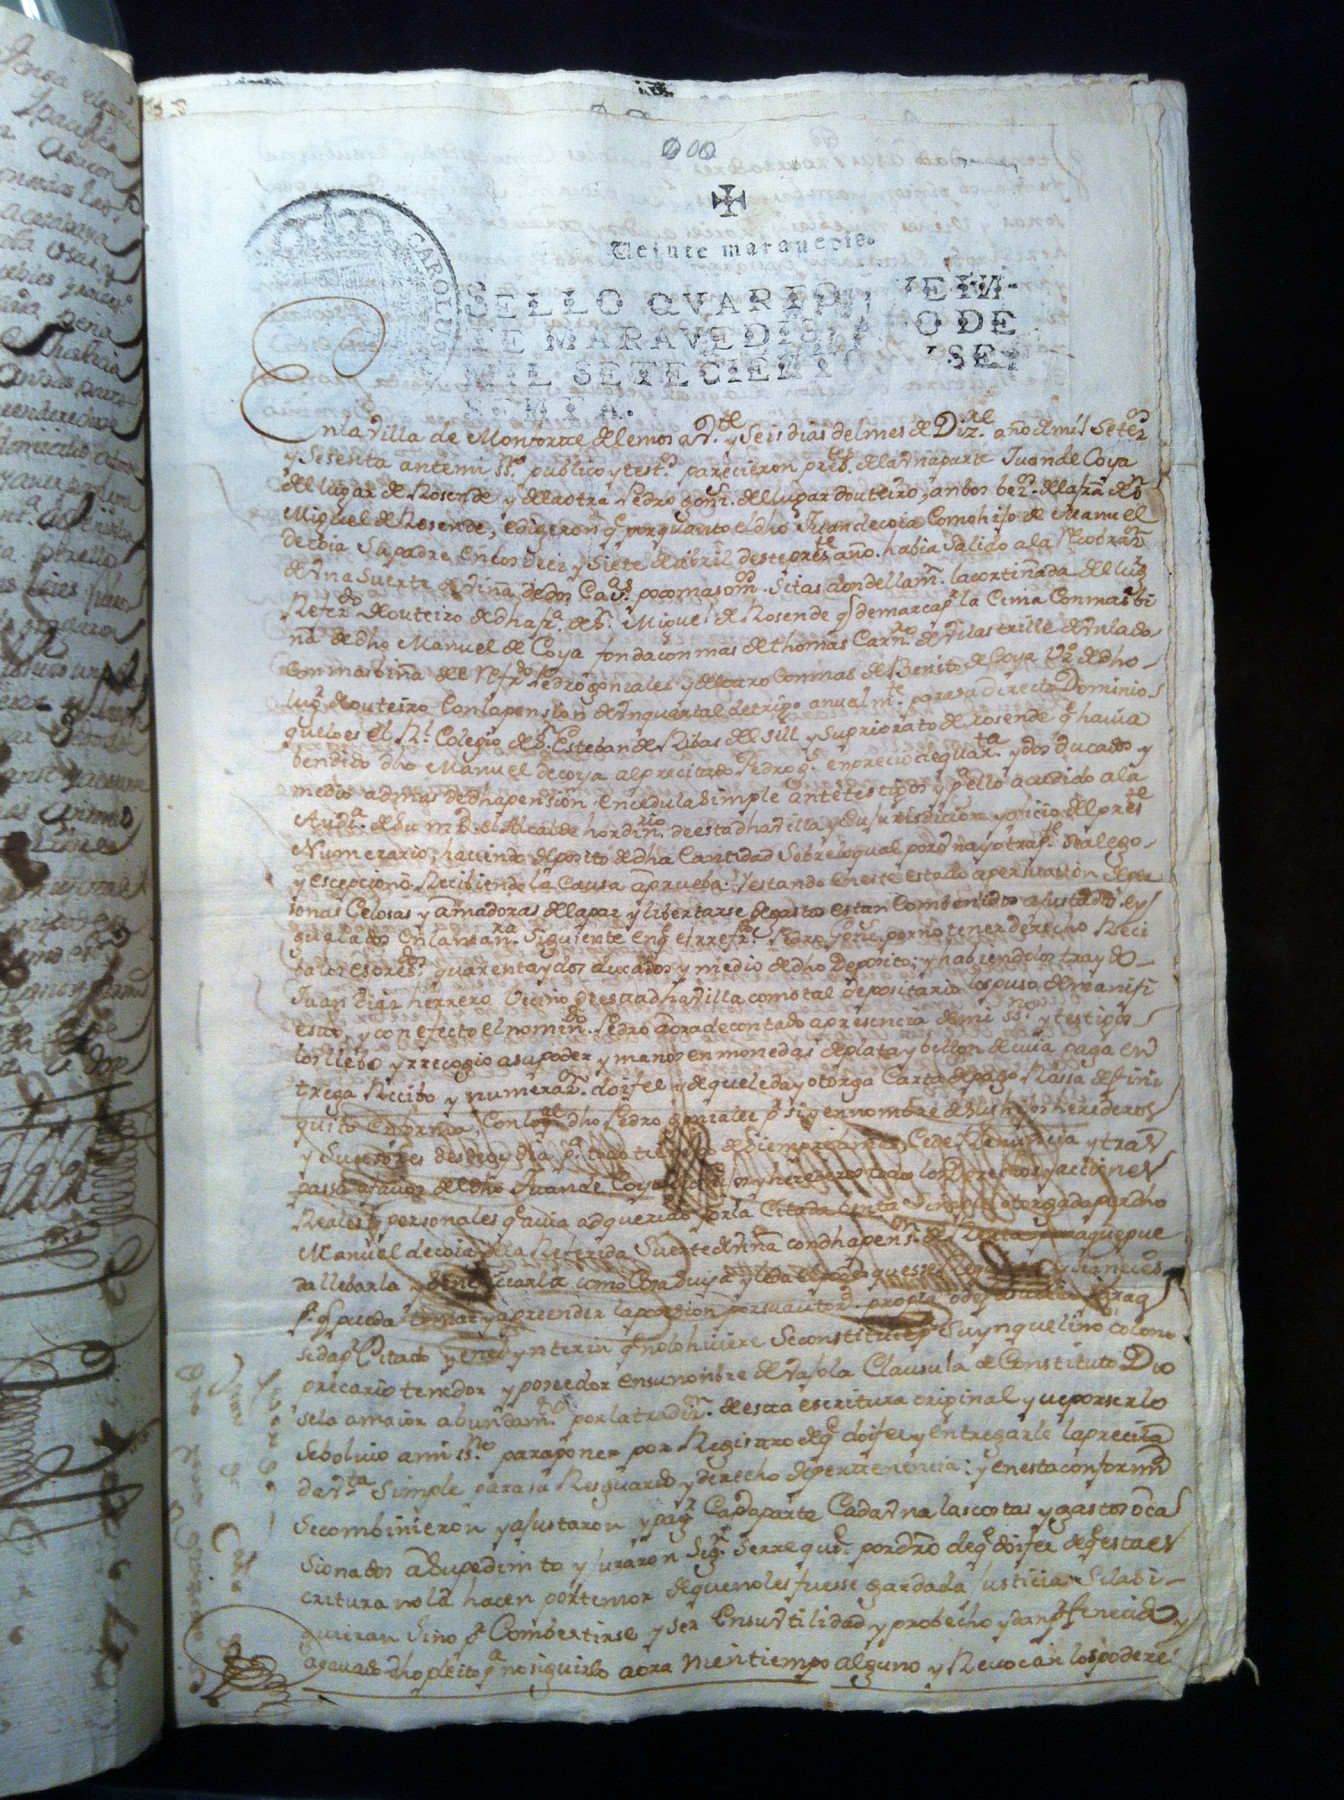 Veinte maravedis.
CAROLUS
SELLO QVARTO, VEIN-
TE MARAVEDIS, AÑO DE
MIL SETECIENTOS Y SE-
SENTA.
En la Villa de Monforte de lemos a Vte. y Seis dias del mes de Dizre. año de mil Setezs.
y Sesenta ante mi ssno. publico y testos. parecieron pretes. de la Vna parte Juan de Coya
del lugar de Rosende y de la otra Pedro gonz. del lugar douteiro, anbos bezos. de la fra. de Sn.
Miguel de Rosende, e digeron q. por quanto el dho Juan de coia Como hijo de Manuel
de coia Su padre en los diez y Siete de abril deste preste. año. havia Salido a la Recobrazn.
de Vna Suerte de Viña de dos Cavs. poco mas o ms. Sitas donde llamn. la cortiñada del lugr.
Referdo. de outeiro de dha fra. de Sn. Miguel de Rosende q. se demarca pr. la Cima Con mas bi
ña de dho Manuel de Coya fonda con mas de thomas Carnro. de Vilastrille de Vn lado
con mas biña del Refrdo. Pedro gonzales y del otro Con mas de Benito de Coya Vzo. de dho
lugr. de outeiro Con la pension de Vn quartal de trigo anualmte. para su directo Dominio
que lo es el Rl. Colegio de Sn. Esteban de Ribas del Sill y Su priorato de rosende q. havia
bendido dho Manuel de coya al precitado Pedro gs. en precio de quarta. y dos ducados y
medio ademas de dha pension en cedula Simple ante testigos y pr. ello acudido a la
Auda. de Su md. el Alcalde hordinrio. de esta dha villa y Su jurisdicion y oficio del preste.
Numerario, haciendo deposito de dha Cantidad Sobre lo qual por Vna y otra pte. Se alego
y escepciono Recibiendo la Causa a prueba: Y estando en este estado a persuasion de per
sonas Celosas y amadoras de la paz y libertarse de gastos estan Combenidos ajustados e y
gualados en la manra. Siguiente en q. el rrefrdo. Pedro gonz. por no tener derecho Reci
ba los espresos. quarenta y dos ducados y medio de dho Deposito; y habiendolos traydo
Juan diaz herrero Vecino de esta dha villa como tal depositario los puso de manifi
esto, y con efecto el nomindo. Pedro aora de contado a presencia de mi ssno. y testigos
los llebo y rrecogio a su poder y manos en monedas de plata y bellon de cuia paga en
trega Recibo y numerazn. doi fee y de que le da y otorga Carta de pago Rassa de fini
quito en forma, Con lo ql. dho Pedro gonzales pr. si y en nombre de Su hijos herederos
y Sucesores desde oy dia pa. todo tiempo de Siempre amas Cede Renuncia y tras
passa a favor de dho Juan de Coya y herederos todos los derechos y aciones
Reales y personales q. avia adquerido por la Citada Venta Simple otorgada por dho
Manuel de coia de la Referida Suerte de Viña con dha pensn. de Renta para que pue
da llebarla y beneficiarla como Cosa Suya y le da el poder que es
pa. q. pueda tomar y aprender la posesion por su autord. propia o de justicia
se da pr. Citado y en el ynterin q. no lo hiciere Se constituie pr. Su ynquelino colono
precario tenedor y poseedor en su nombre de Vajo la Clausula de Constituto Dio
sela a maior abundamto. por la tradizn. de esta escritura original y ue por serlo
Se bolvio a mi ssno. para poner por Registro de q. doi fee y entregarle la precita
da Vta. Simple para Su Resguardo y derecho de pertenencia: y en esta conformd.
Se combinieron y ajustaron y pagr. Cada parte Cada Vna las costas y gastos oca
Sionados a Su pedimto y juraron Segn. Se rreque. por dro de q. doi fee de q. esta es
critura no la hacen por temor de que no les fuesse gardada justicia Si la Si-
guieran Sino pr. Combertirse y Ser en Su Vtilidad y probecho y dan pr. fenecido y
acavado dho pleito pa. no siguirlo aora ni en tiempo alguno y Revocan los podere